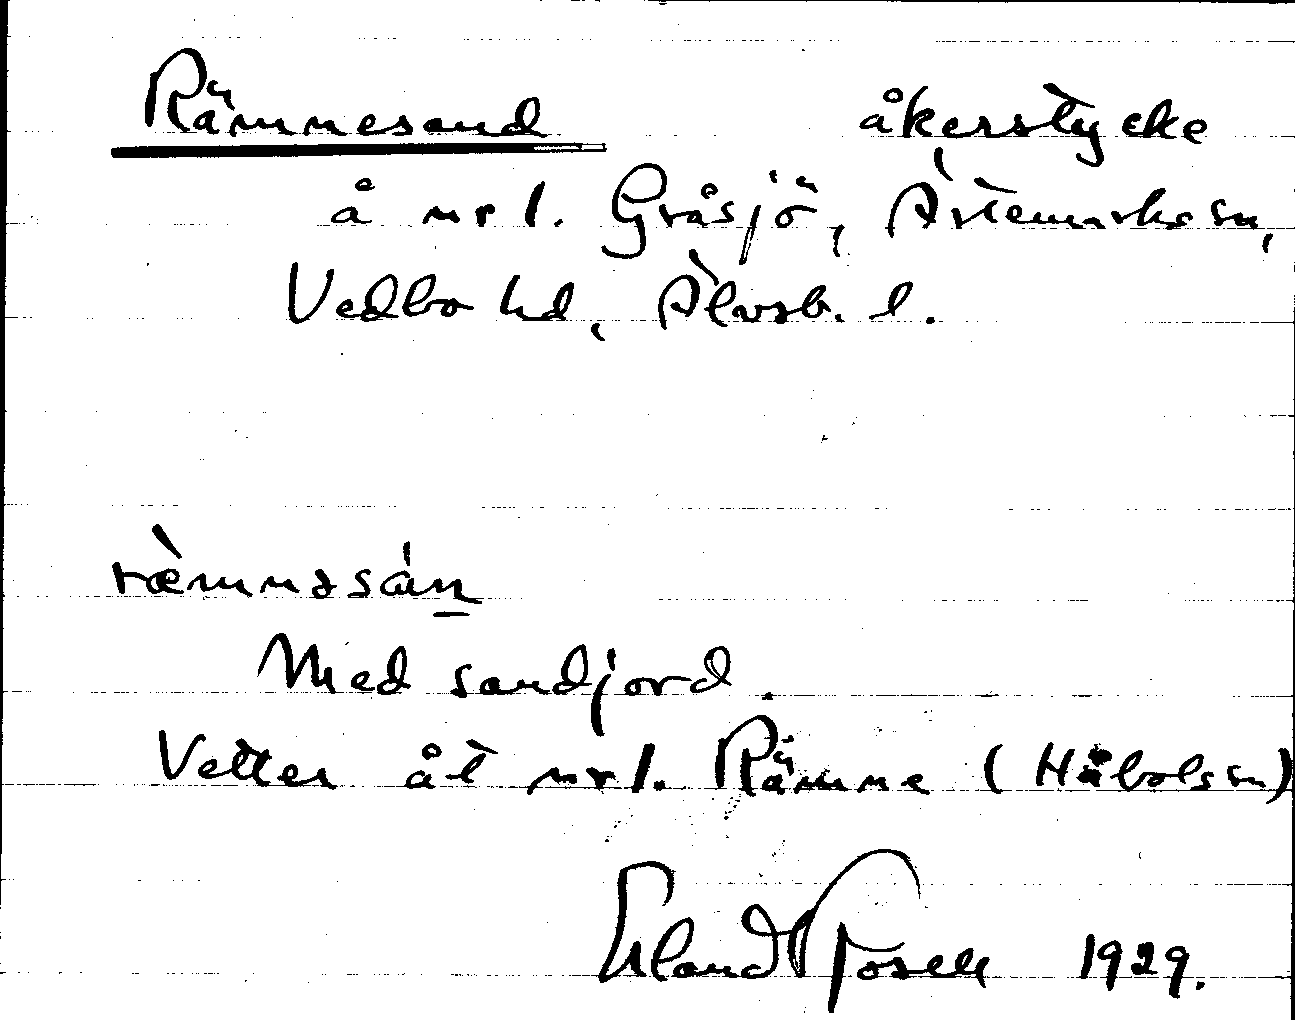 Rämnesand åkerstycke
å nr 1. Gråsjö, Ärtemarks sn,
Vedbo hd, Älvsb. l.
ræ̀mnəsán̲
Med sandjord.
Vetter åt nr 1. Rämne (Håbols sn)
Erland Rosell 1929.